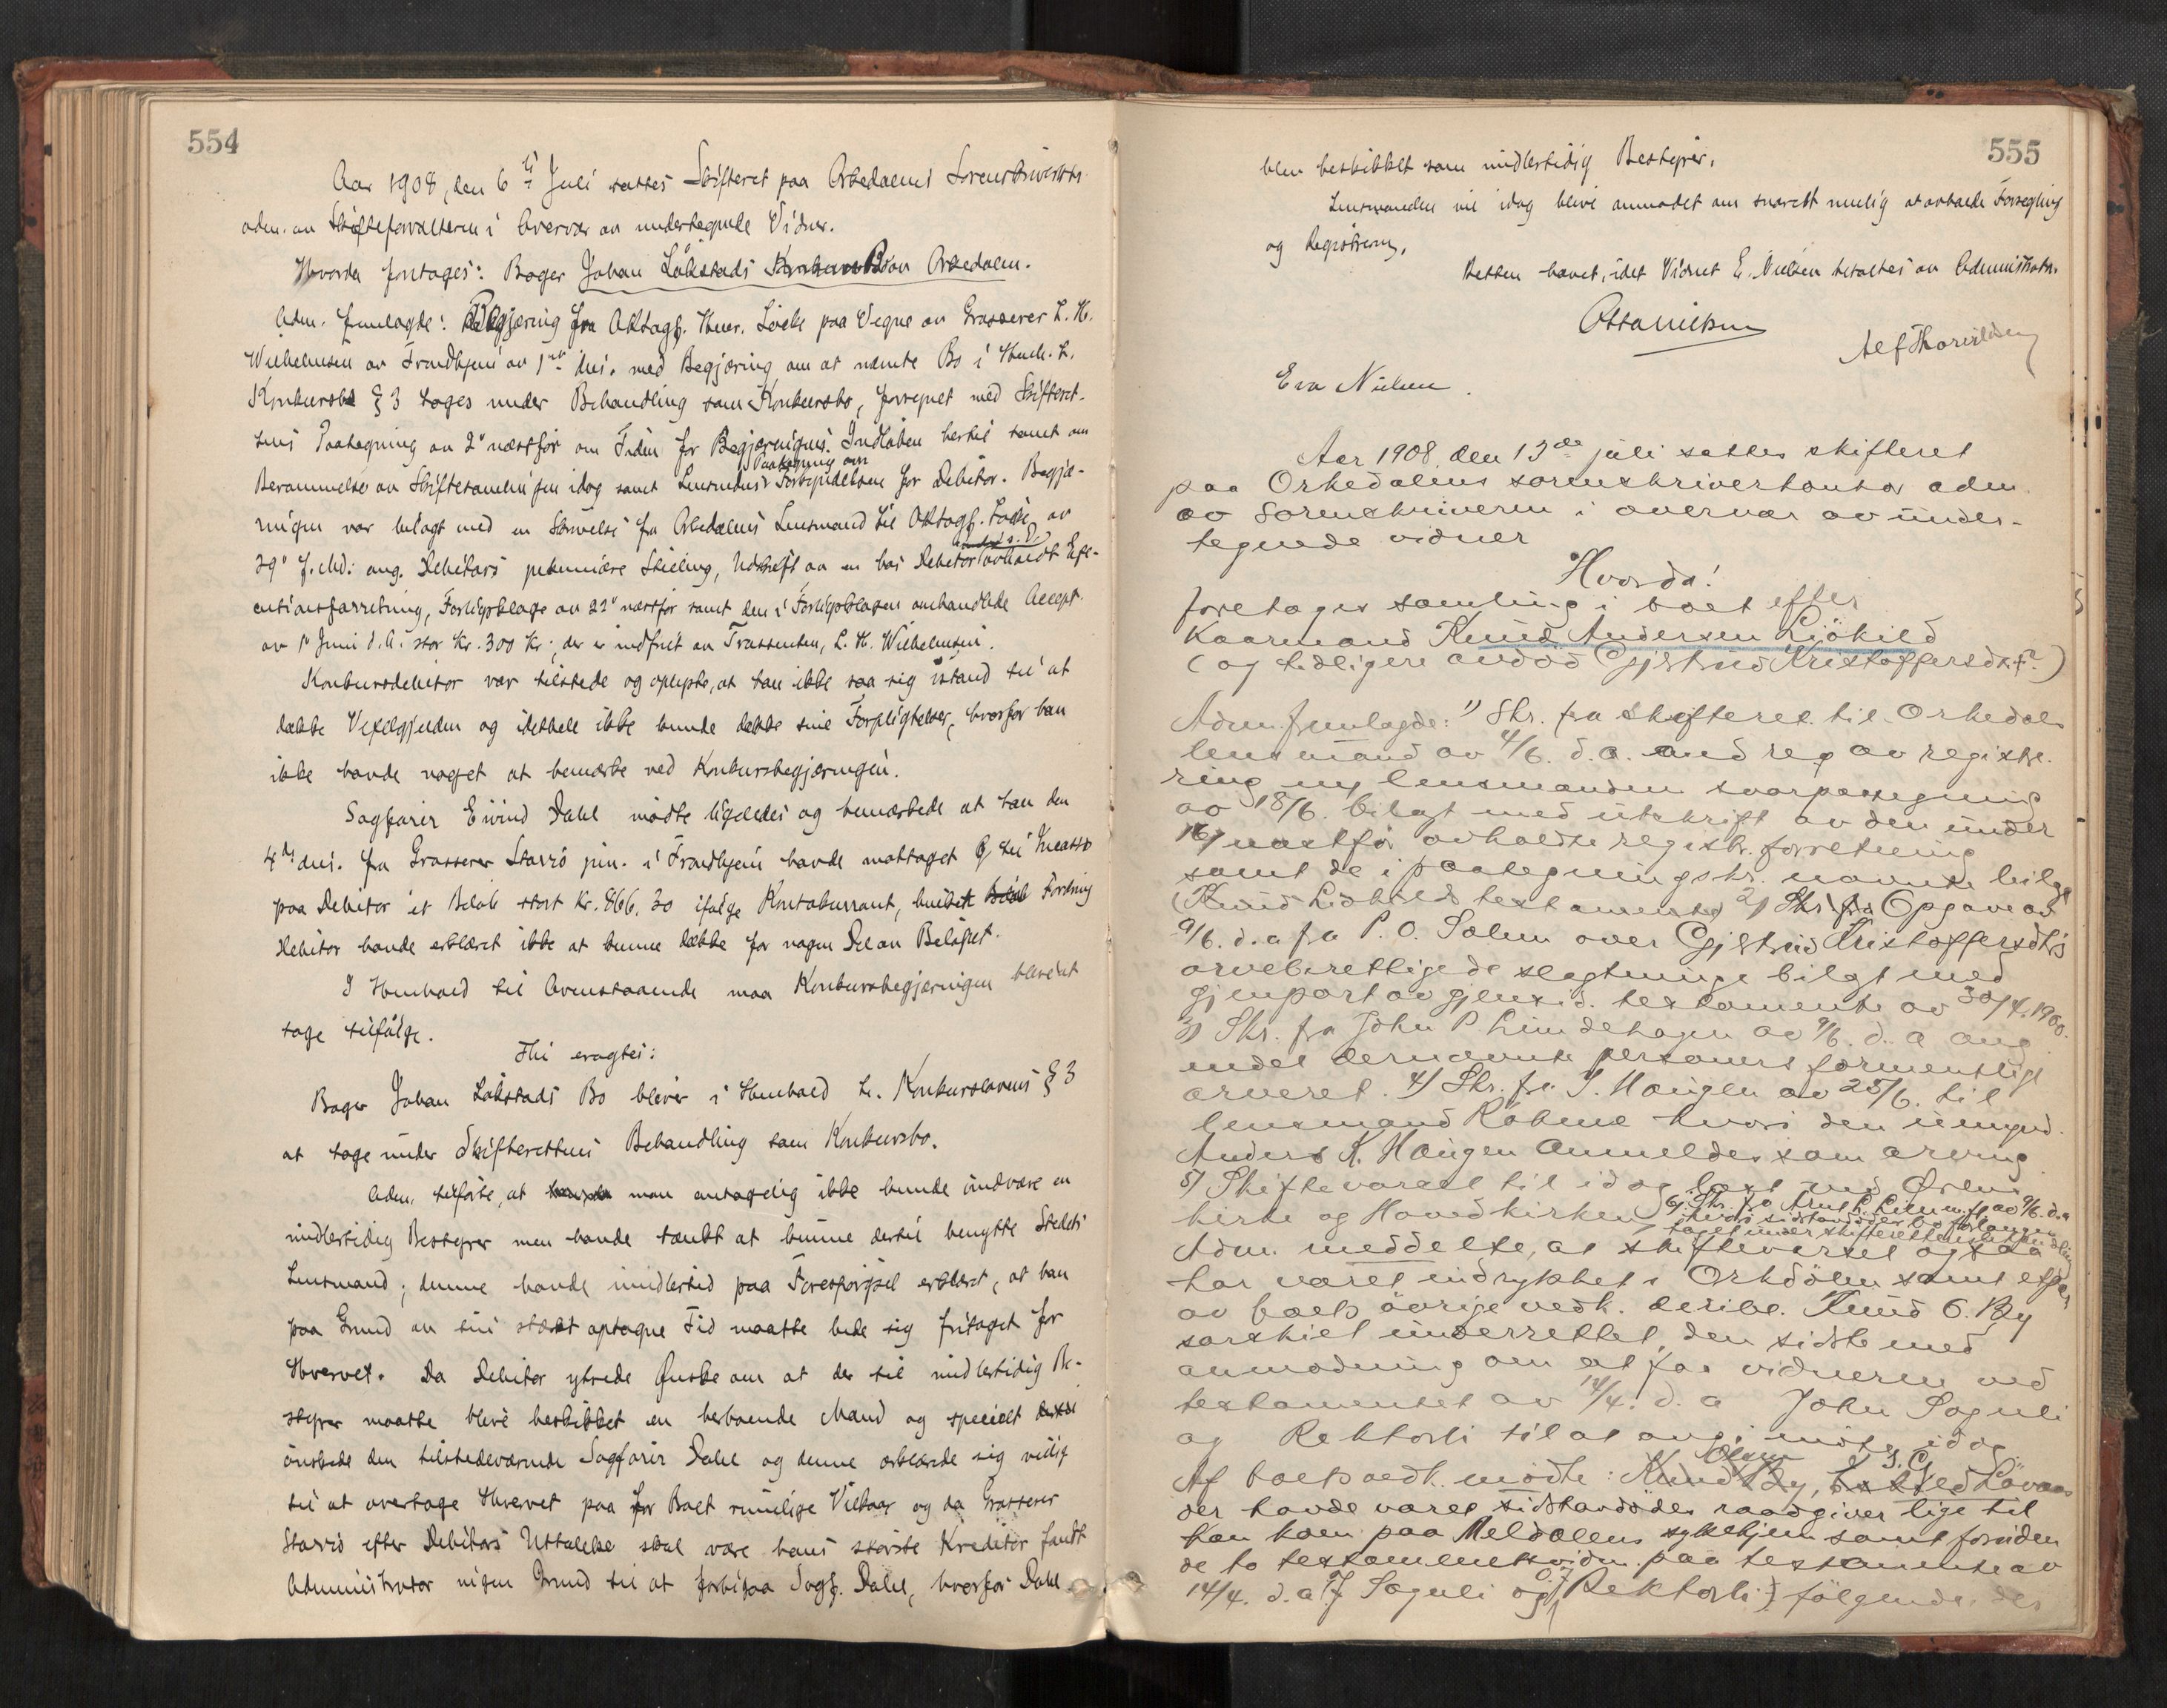 554
Aar 1908, den 6te Juli sattes Skifteret paa Orkedalens Sorenskriverktr.
adm. av Skifteforvalteren i Overvær av undertegnede Vidner.
Hvorda foretages: Bager Johan Lökstads Konkursbo av Orkedalen.
Adm. fremlagde: Begjæring fra Oktagf. Henr. Löcke paa Vegne av Grosserer L. H.
Wilhelmsen av Trondhjem av 1ste ds. med Begjæring om at nævnte Bo i Henh. t.
Konkursl. § 3 tages under Behandling som Konkursbo, forsynet med Skifteret-
tens Paategning av 2' næstför om Tiden for Begjæringens Indkomst hertil samt om
Berammelse av Skiftesamlingen idag samt Lensmdns Paategning om Forkyndelsen for Debitor. Begjæ-
ringen var bilagt med en Skrivelse fra Orkedalens Lensmand til Oktagf. Löcke av
29' f. Md. ang. Debitors pekuniære Stilling, Udskrift av en hos Debitor avholdt Exe-
cutionsforretning, Forligsklage av 22' næstför samt den i Forligsklagen omhandlede Accept
av 1' Juni d. A. stor Kr. 300 Kr.; der er indfriet av Trassenten, L. H. Wilhelmsen.
Konkursdebitor var tilstede og oplyste, at han ikke saa sig istand til at
dække Vexelgjelden og idethele ikke kunde dække sine Forpligtelser, hvorfor han
ikke havde noget at bemærke ved Konkursbegjæringen.
Sagförer Eivind Dahl mödte ligeledes og bemærkede at han den
4de ds. fra Grosserer Starrö jun. i Trondhjem havde mottaget til Incasso
paa Debitor et Belöb stort Kr. 866.30 ifölge Kontokurrant, hvilket Fordring
Debitor havde erklæret ikke at kunne dække for nogen Del av Belöpet.
I Henhold til Ovenstaaende maa Konkursbegjæringen blive at
tage tilfölge.
Thi eragtes:
Bager Johan Lökstads Bo bliver i Henhold t. Konkurslovens § 3
at tage under Skifterettens Behandling som Konkursbo.
Adm. tilförte, at man antagelig ikke kunde undvære en
midlertidig Bestyrer men havde tænkt at kunne dertil benytte Stedets
Lensmand; denne havde imidlertid paa Forespörgsel erklært, at han
paa Grund av sin stærkt optagne Tid maatte bede sig fritaget for
Hvervet. Da Debitor ytrede Önske om at der til midlertidig Be-
styrer maatte blive beskikket en herboende Mand og specielt
önskede den tilstedeværende Sagförer Dahl og denne erklærede sig villig
til at overtage Hvervet paa for Boet rimelige Vilkaar og da Grosserer
Starrö efter Debitors Uttalelse skal være hans störste Kreditor fandt
Administrator ingen Grund til at forbigaa Sagf. Dahl, hvorfor Dahl
555
blev beskikket som midlertidig Bestyrer.
Lensmanden vil idag blive anmodet om snarest mulig at avholde Forsegling
og Registrering.
Retten hævet, idet Vidnet E. Nielsen betaltes av Administrator.
Otto Nielsen
Alf Thorvildsen
Eva Nielsen.
Aar 1908, den 13de juli sattes skifteret
paa Orkedalens sorenskriverkontor adm.
av sorenskriveren i overvær av under-
tegnede vidner
Hvorda!
foretages samling i boet efter
Kaarmand Knud Andersen Ljökild
(og tidligere avdöd Gjertrud Kristoffersdt.)
Adm. fremlagde: 1) Skr. fra skifteret til Orkedals
lensmand av 4/6. d. a. med req. av registre-
ring m/ lensmanden svarpaategning
av 18/6. bilagt med utskrift av den under
16/ næstför avholdte registr. forretning
samt de i paategningsktr. nævnte bilag
(Knud Liökilds testamente) 2) Opgave av
9/6. d. a fra P. O. Solem over Gjertrud Kristoffersdts
arveberettigede slegtninge bilagt med
gjenpart av gjensid. testamente av 30/4. 1900.
3) Skr. fra John P. Lindehagen av 9/6. d. a ang
endel dernævnte personers formentlige
arveret. 4) Skr. fra I. Haugen av 25/6. til
lensmand Kobme hvori den umynd.
Anders K. Haugen anmeldes som arving
5) Skiftevarsel til idag læst ved
kirke og Hovedkirken 6) Skr. fra av 9/6. d. a
hvori sidstavdödes bo forlanges
taget under skifterettens behandling
Adm. meddelte, at skiftevarsel ogsaa
har været indrykket i Orkdölen samt
av boets övrige vedk. deribl. Knud O. By
særskilt underrettet, den sidste med
anmodning om at faa vidnerne ved
testamentet av 14/4. d. a John Soguli
og Rektorli til at möte idag
Af boets vedk. mödte: Knud Olsen By, I. G. Lövaas
der havde været sidstavdödes raadgiver lige til
han kom paa Meldalens sykehjem samt foruden
de to testamentsvidn. paa testamente av
14/4. d. a J. Soguli og O. J. Rektorli: följende der